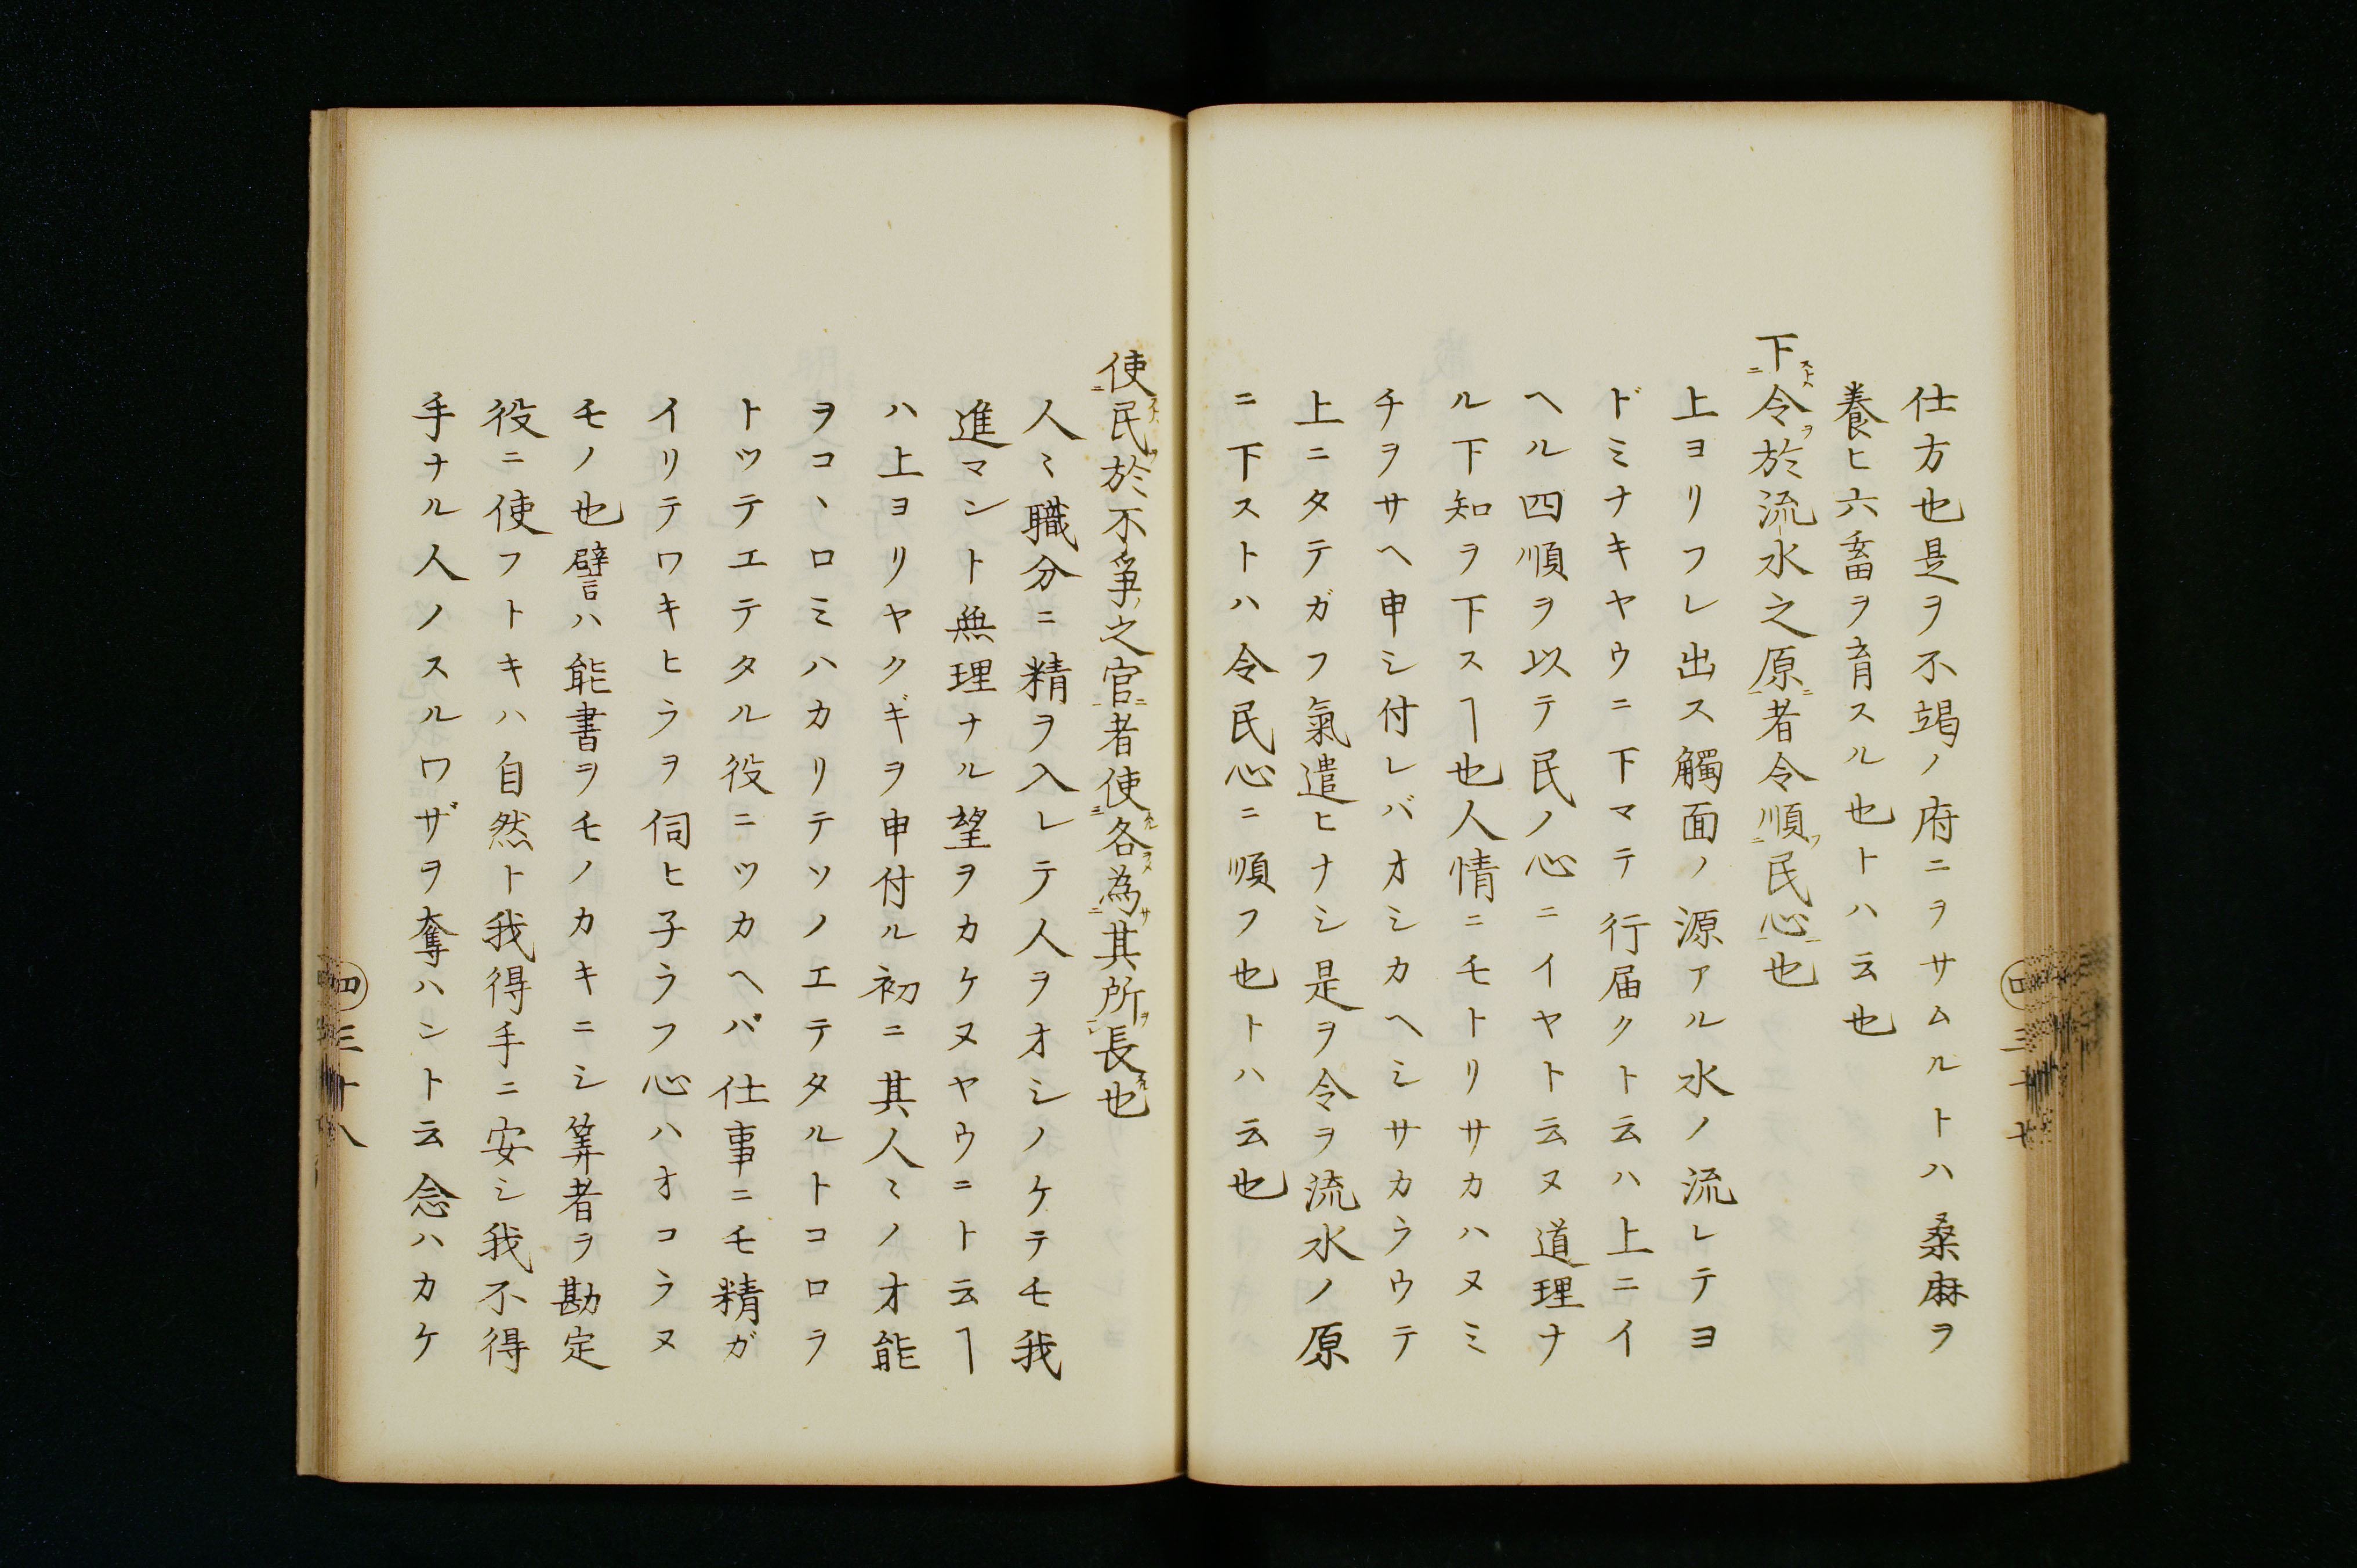 仕方也是ヲ不竭ノ府ニヲサムルトハ桑麻ヲ
養ヒ六畜ヲ育スル也トハ云也
下令於流水之原者令順民心也
上ヨリフレ出ス觸面ノ源アル水ノ流レテヨ
ドミナキヤウニ下マテ行届クト云ハ上ニイ
ヘル四順ヲ以テ民ノ心ニイヤト云ヌ道理ナ
ル下知ヲ下スヿ也人情ニモトリサカハヌミ
チヲサヘ申シ付レバオシカヘシサカラウテ
上ニタテガフ氣遣ヒナシ是ヲ令ヲ流水ノ原
ニ下ストハ令民心ニ順フ也トハ云也
使民於不爭之官者使各為其所長也
人〻職分ニ精ヲ入レテ人ヲオシノケテモ我
進マント無理ナル望ヲカケヌヤウニト云ヿ
ハ上ヨリヤクギヲ申付ル初ニ其人〻ノオ能
ヲコヽロミハカリテソノエテタルトコロヲ
トツテエテタル役ニツカヘバ仕事ニモ精ガ
イリテワキヒラヲ伺ヒ子ラフ心ハオコラヌ
モノ也譬ハ能書ヲモノカキニシ筭者ヲ勘定
役ニ使フトキハ自然ト我得手ニ安シ我不得
手ナル人ノスルワザヲ奪ハントz云念ハカケ
四 三十八